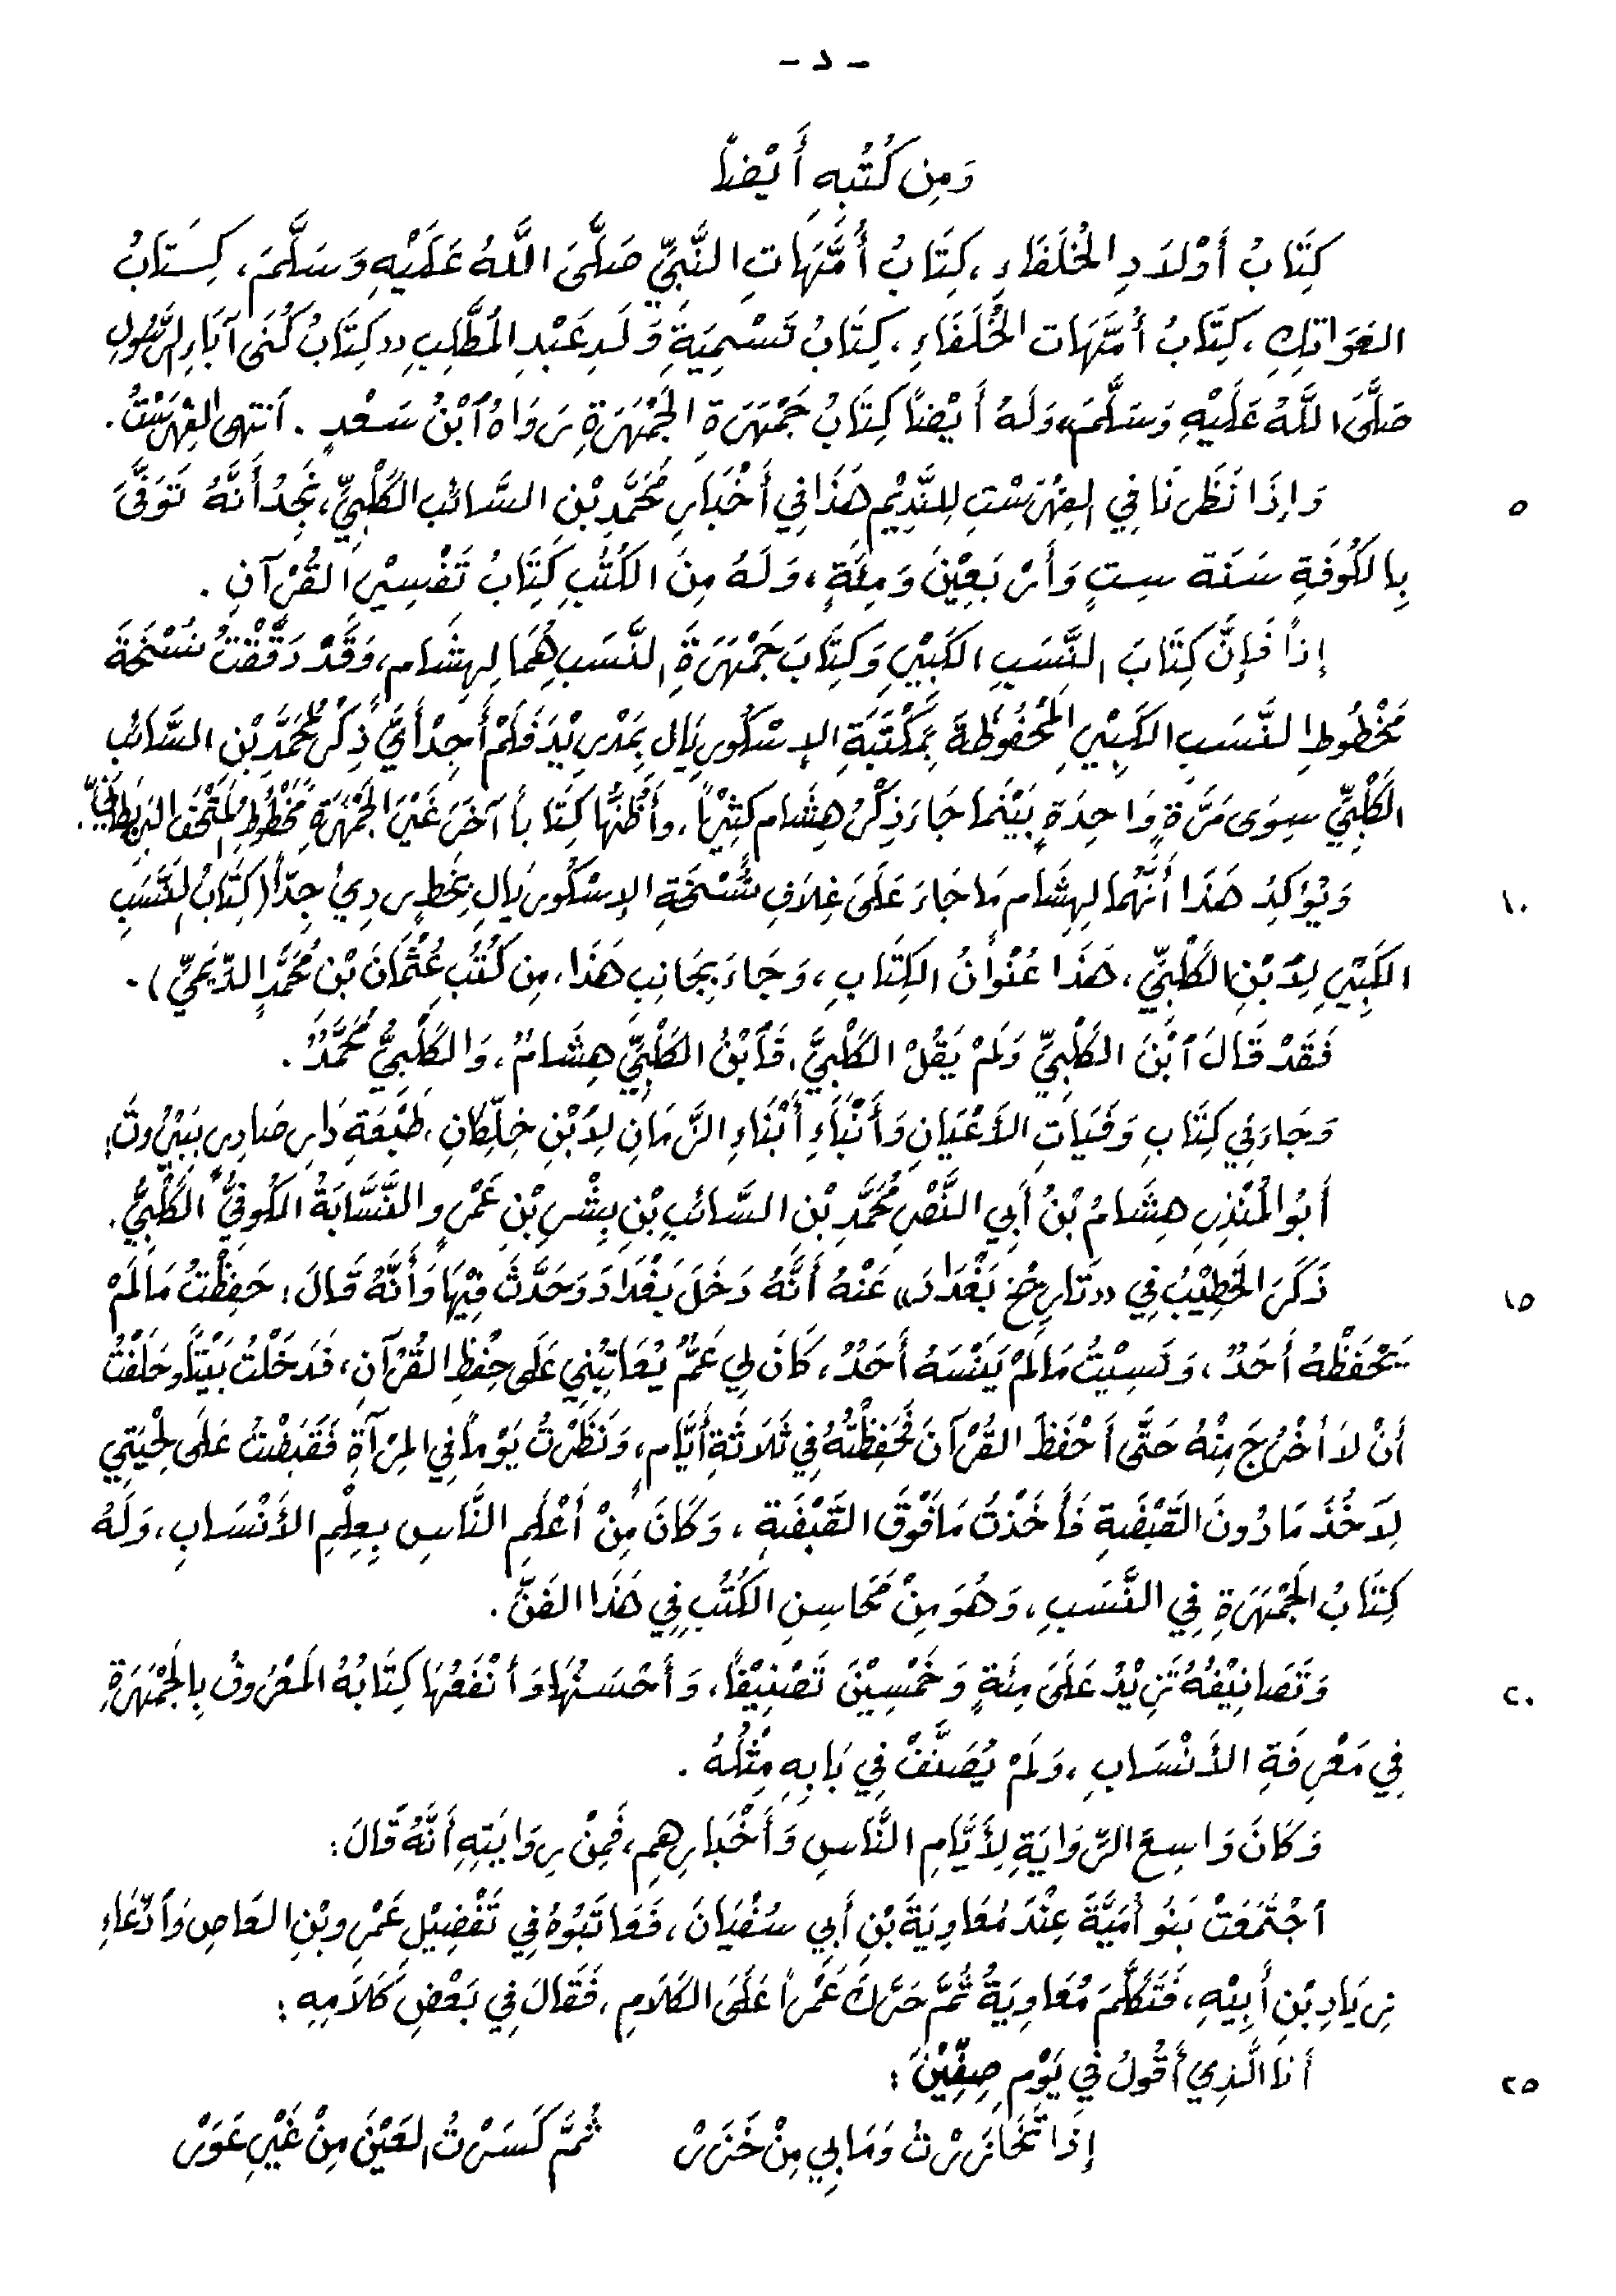 - د -
وَمِن كُتُبِهِ أَيْضاً
كِتَابُ أَوْلاَدِ الخُلَفَاءِ، كِتَابُ أُمَّهَاتِ النَّبِيِّ صَلَّى اللَّهُ عَلَيْهِ وَسَلَّمَ، كِتَابُ
العَوَاتِكِ، كِتَابُ أُمَّهَات الخُلَفَاءِ، كِتَابُ تَسْمِيَةِ وَلَدِ عَبْدِ المُطَّلِبِ «كِتَابُ كُنَى آبَاءِ الرَّسُولِ
صَلَّى اللَّهُ عَلَيْهِ وَسَلَّمَ» وَلَهُ أَيْضاً كِتَابُ جَمْهَرَةِ الجَمْهَرَةِ رَوَاهُ ٱبْنُ سَعْدٍ. ٱنتهى الفِهْرِسْتُ.
وَإِذَا نَظَرنَا فِي الفِهْرِسْتِ لِلنَّدِيْمِ هَذَا فِي أَخْبَارِ مُحَمَّدِ بْنِ السَّائب الكَلْبِيِّ، نَجِدُ أَنَّهُ تَوَفَّى ٥
بِالكُوفَةِ سَنَة سِتٍ وَأَرْبَعِيْنَ وَمِئَةٍ، وَلَهُ مِنَ الكُتُبِ كِتَابُ تَفْسِيْرِ القُرْآنِ.
إِذاً فَإِنَّ كِتَابَ النَّسَبِ الكَبِيْرِ وَكِتَابَ جَمْهَرَةِ النَّسَبِ هُمَا لِهِشَام، وَقَدْ دَقَّقْتُ نُسْخَةَ
مَخْطُوطِ النَّسَبِ الكَبِيْرِ المَحْفُوظَةَ بِمَكْتَبَةِ الإسْكُورِيَال بِمَدْرِيْدَ فَلَمْ أَجِدْ أَيَّ ذِكْرٍ لِمُحَمَّدِ بْنِ السَّائب
الكَلْبِيِّ سِوَى مَرَّةٍ وَاحِدَةٍ بَيْنَمَا جَاءَ ذِكْرُ هِشَام كَثِيْراً، وأَظُنُّهَا كِتَاباً آخَرَ غَيْرَ الجَمْهَرَةِ مَخْطُوطِ المُتْحَفِ البَرِيطَانِيِّ.
وَيُؤكِدُ هَذَا أَنَّهُمَا لِهِشَام مَا جَاءَ عَلَى غِلاَفِ نُسْخَةِ الإسْكُورِيَالِ بِخَطٍ رَدِيءٍ جِدّاً (كِتَابُ النَّسَبِ ١٠
الكَبِيْرِ لِٱبْنِ الكَلْبِيِّ، هَذَا عُنْوَانُ الكِتَابِ، وَجَاءَ بِجَانِبِ هَذَا، مِن كُتُبِ عُثْمَانَ بْنِ مُحَمَّدٍ الدِّيَمِيِّ).
فَقَدْ قَالَ ٱبْنَ الكَلْبِيِّ وَلَمْ يَقُلْ الكَلْبِيَّ، فَٱبْنُ الكَلْبِيِّ هِشَامٌ، وَالكَلْبِيُّ مُحَمَّدٌ.
وَجَاءَ فِي كِتَابِ وَفَيَاتِ الأَعْيَانِ وَأَنْبَاءِ أَبْنَاءِ الزَّمَانِ لِٱبْنِ خِلِّكَانِ، طَبْعَةِ دَارِ صَادِرِ بِبَيْرُوتَ:
أَبُو المُنْذِرِ هِشَامُ بْنُ أَبِي النَّضْرِ مُحَمَّدِ بْنِ السَّائبِ بْنِ بِشْرِ بْنِ عَمْرٍو النَّسَّابَةُ الكُوفِيُّ الكَلْبِيُّ.
ذَكَرَ الخَطِيْبُ فِي «تَارِيْخِ بَغْدَادَ» عَنْهُ أَنَّهُ دَخَلَ بَغْدَادَ وَحَدَّثَ فِيْهَا وَأَنَّهُ قَالَ: حَفِظْتُ مَا لَمْ ١٥
يَحْفَظْهُ أَحَدٌ، وَنَسِيْتُ مَا لَمْ يَنْسَهُ أَحَدٌ، كَانَ لِي عَمٌّ يُعَاتِبُنِي عَلَى حِفْظِ القُرْآنِ، فَدَخَلْتُ بَيْتاً وَحَلَفْتُ
أَنْ لاَ أَخْرُجَ مِنْهُ حَتَّى أَحْفَظَ القُرْآنَ فَحَفِظْتُهُ فِي ثَلاَثَةِ أَيَّام، وَنَظَرْتُ يَوْماً فِي المِرْآةِ فَقَبَضْتُ عَلَى لِحْيَتِي
لِآخُذَ مَا دُونَ القَبْضَةِ فَأَخَذْتُ مَا فَوْقَ القَبْضَةِ، وَكَانَ مِنْ أَعْلَمِ النَّاسِ بِعِلْمِ الأَنْسَابِ، وَلَهُ
كِتَابُ الجَمْهَرَةِ فِي النَّسَبِ، وَهُوَ مِنْ مَحَاسِنِ الكُتُبِ فِي هَذَا الفَنِّ.
وَتَصَانِيْفُهُ تَزِيْدُ عَلَى مِئَةٍ وَخَمْسِيْنَ تَصْنِيْفاً، وَأَحْسَنُهَا وَأَنْفَعُهَا كِتَابُهُ المَعْرُوفُ بِالجَمْهَرَةِ ٢٠
فِي مَعْرِفَةِ الأَنْسَابِ، وَلَمْ يُصَنَّفْ فِي بَابِهِ مِثْلُهُ.
وَكَانَ وَاسِعَ الرِّوَايَةِ لِأَيَّامِ النَّاسِ وَأَخْبَارِهِم، فَمِنْ رِوَايَتِهِ أَنَّهُ قَالَ:
ٱجْتَمَعَتْ بَنُو أُمَيَّةَ عِنْدَ مُعَاوِيَةَ بْنِ أَبِي سُفْيَانَ، فَعَاتَبُوهُ فِي تَفْضِيْلِ عَمْرِو بْنِ العَاصِ وَٱدِّعَاءِ
زِيَادِ بْنِ أَبِيْهِ، فَتَكَلَّمَ مُعَاوِيَةُ ثُمَّ حَرَّكَ عَمْراً عَلَى الكَلاَمِ، فَقَالَ فِي بَعْضِ كَلاَمِهِ:
أَنَا الَّذِي أَقُولُ فِي يَوْمِ صِفِّيْنَ: ٢٥
إِذَا تَخَازَرْتُ وَمَا بِي مِنْ خَزَرْ ثُمَّ كَسَرْتُ العَيْنَ مِنْ غَيْرِ عَوَرْ